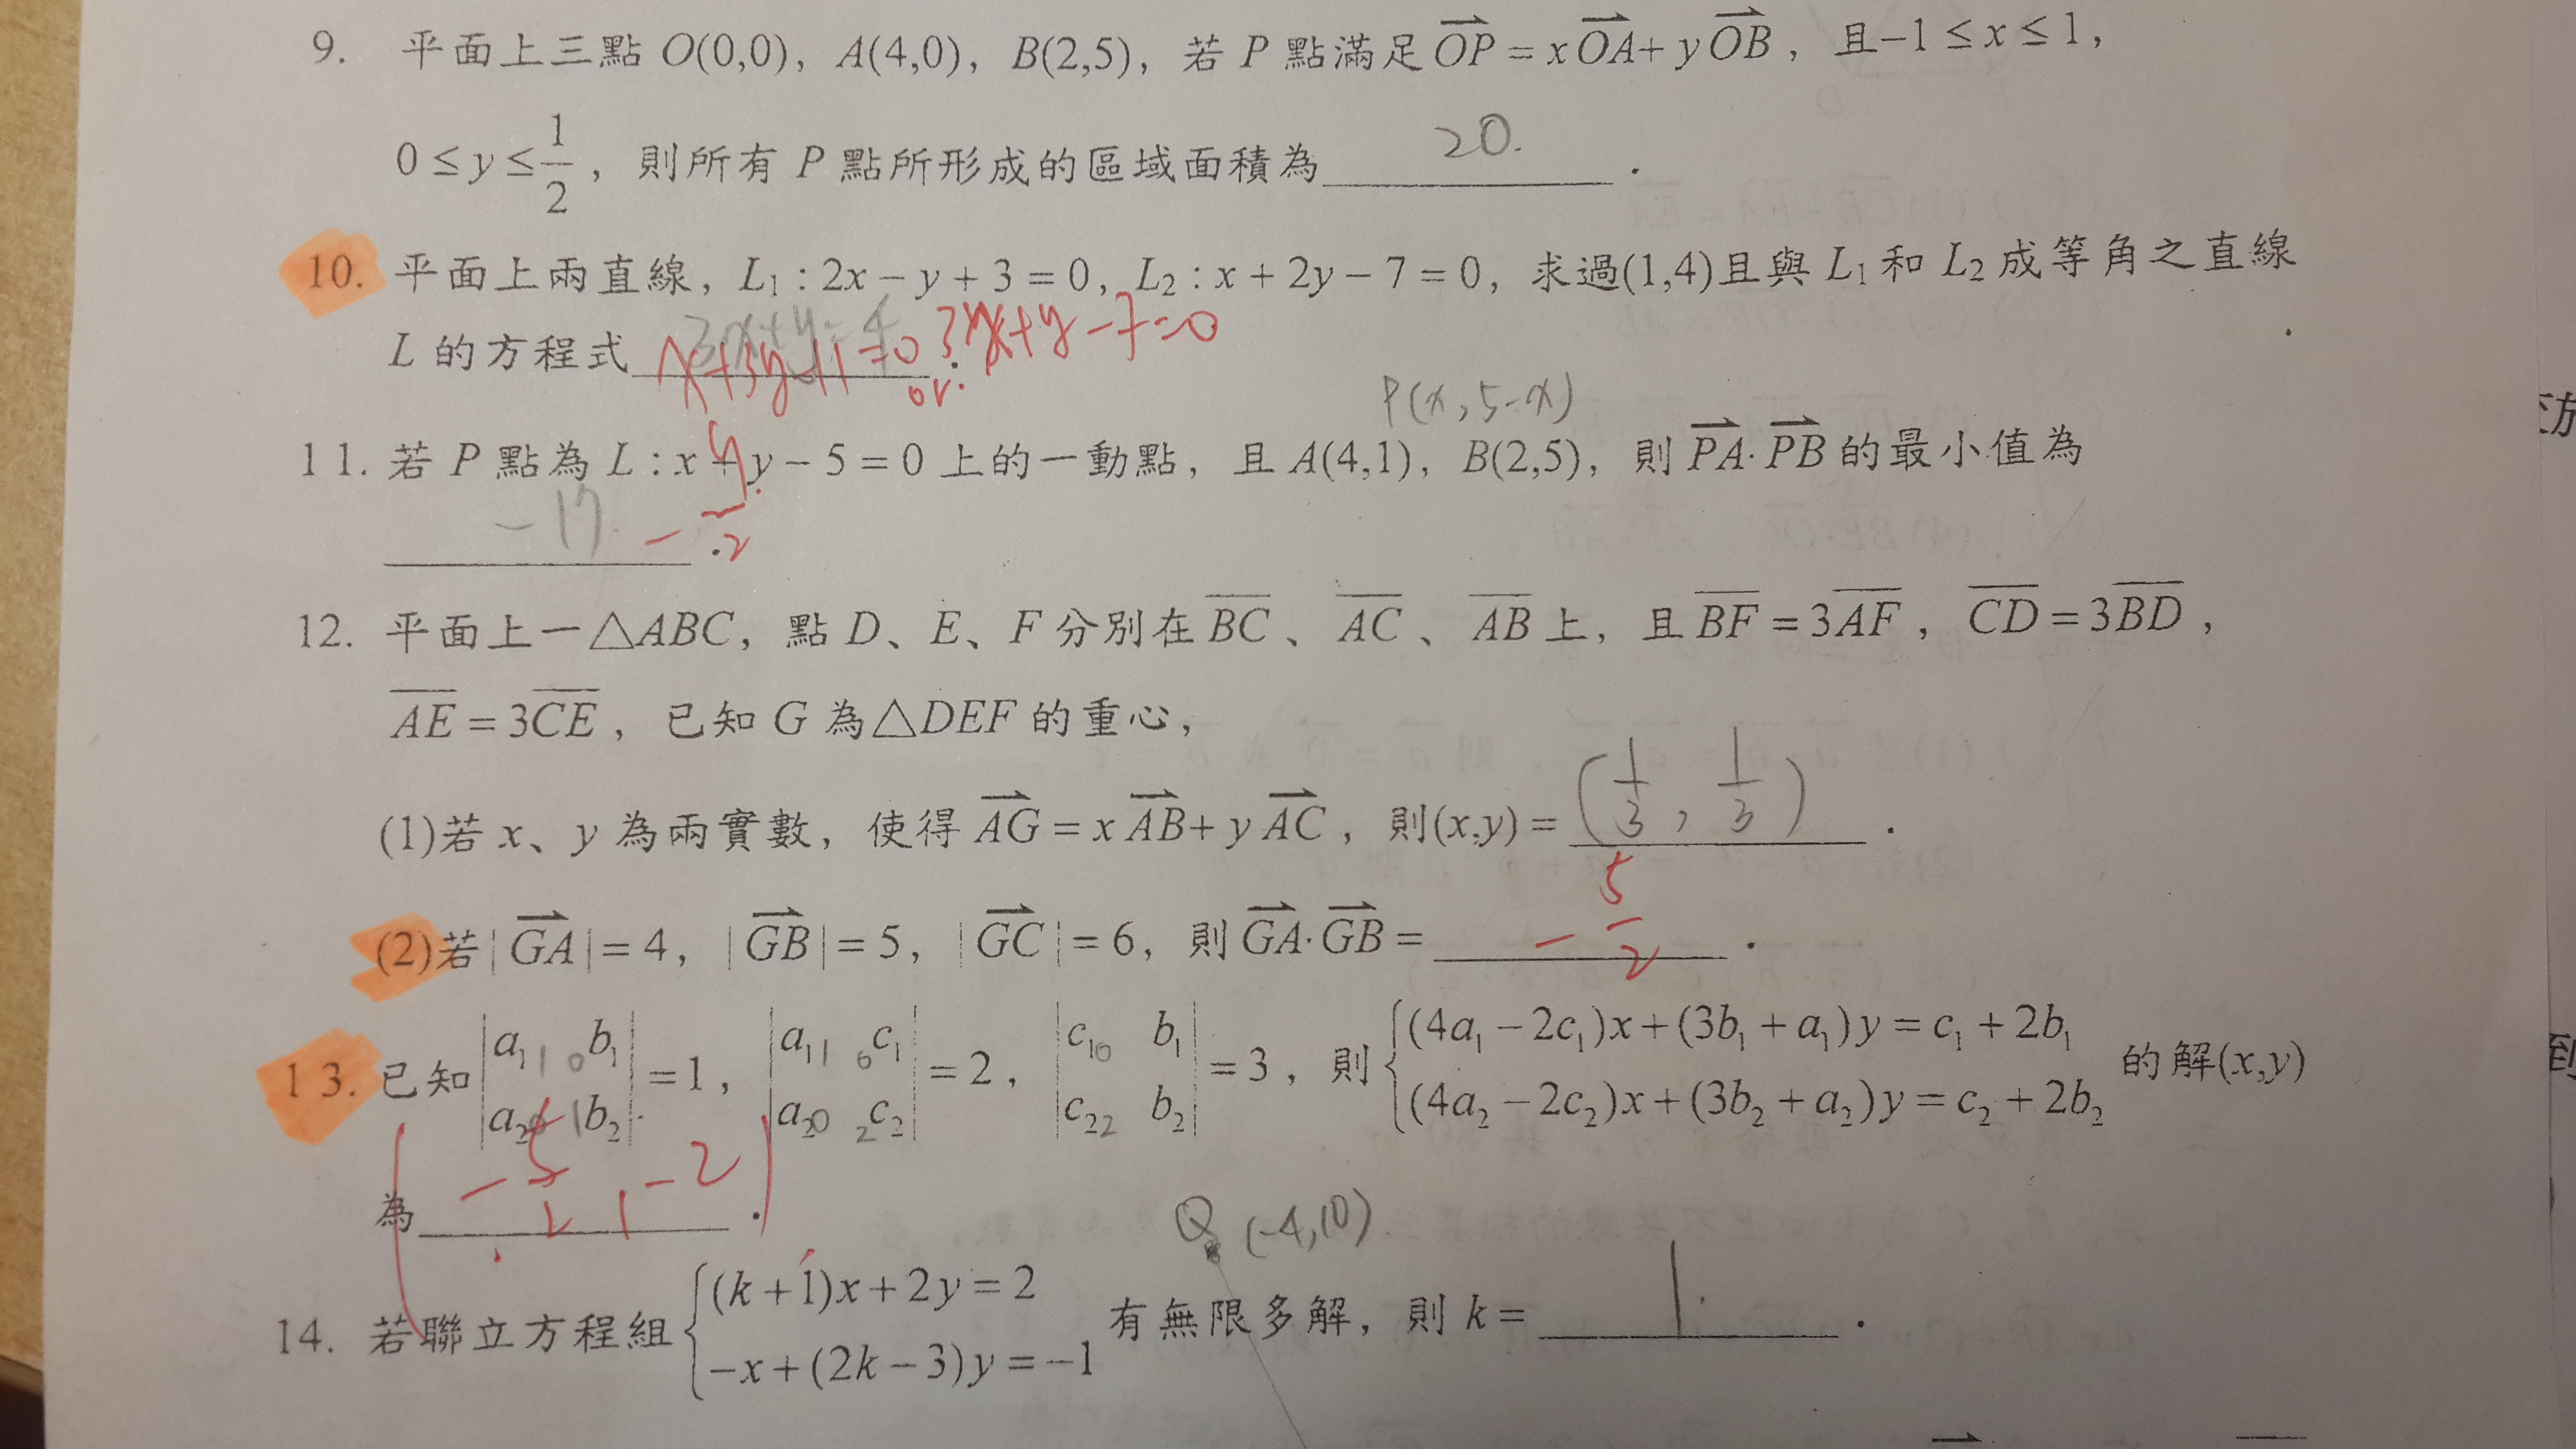 9. 平面上三點 O(0,0), A(4,0), B(2,5), 若 P 點滿足 OP = xOA + yOB, 且 -1 ≤ x ≤ 1,
0 ≤ y ≤ 1/2, 則所有 P 點所形成的區域面積為 20.
10. 平面上兩直線, L₁ : 2x − y + 3 = 0, L₂ : x + 2y − 7 = 0, 求過(1,4)且與 L₁ 和 L₂ 成等角之直線
L 的方程式 x+3y-11=0 or. 3x+y-7=0
P(x, 5-x)
11. 若 P 點為 L : x + y − 5 = 0 上的一動點, 且 A(4,1), B(2,5), 則 PA · PB 的最小值為
-17 -9/2
12. 平面上一△ABC, 點 D、E、F 分別在 BC、AC、AB 上, 且 BF = 3AF, CD = 3BD,
AE = 3CE, 已知 G 為△DEF 的重心,
(1)若 x、y 為兩實數, 使得 AG = xAB + yAC, 則(x,y) = (1/3, 1/3).
(2)若|GA| = 4, |GB| = 5, |GC| = 6, 則 GA · GB = -5/2.
13. 已知 |a₁ b₁; a₂ b₂| = 1, |a₁ c₁; a₂ c₂| = 2, |c₁ b₁; c₂ b₂| = 3, 則 {(4a₁ − 2c₁)x + (3b₁ + a₁)y = c₁ + 2b₁
(4a₂ − 2c₂)x + (3b₂ + a₂)y = c₂ + 2b₂ 的解(x,y)
為 (-5/2, -2).
Q (-4,10)
14. 若聯立方程組 {(k + 1)x + 2y = 2
−x + (2k − 3)y = −1 有無限多解, 則 k = 1.